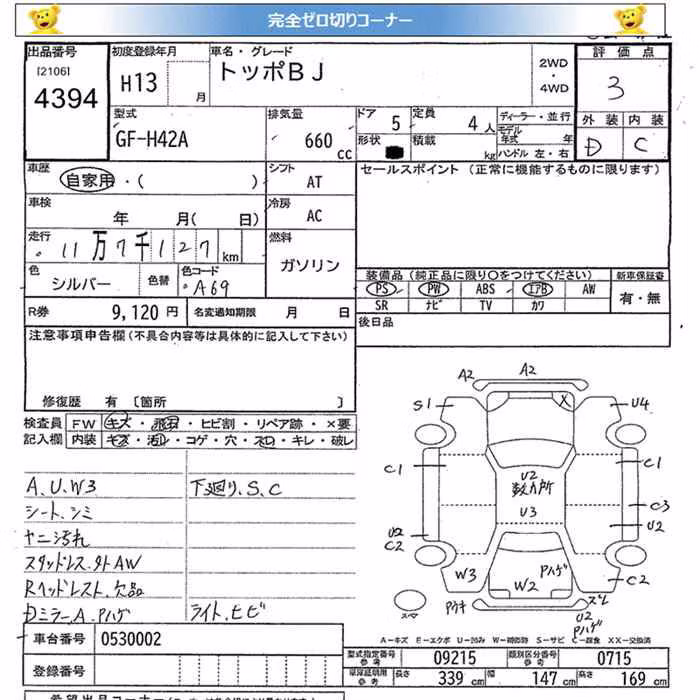 完全ゼロ切りコーナー
出品番号 初度登録年月 車名・グレード 評価点
[2106]
4394 H13 月 トッポBJ 2WD・4WD 3
型式 排気量 ドア 5 定員 4人 ディーラー・並行 外装 内装
GF-H42A 660cc 形状 積載 kg モデル年式 年 D C
ハンドル 左・右
車歴 シフト セールスポイント (正常に機能するものに限ります)
自家用・( ) AT
車検 冷房
年 月( 日) AC
走行 燃料
11万7千127km ガソリン
色 色替 色コード 装備品(純正品に限り○をつけてください) 新車保証書
シルバー A69 PS PW ABS エアB AW 有・無
SR ナビ TV カワ
R券 9,120円 名変通知期限 月 日
後日品
注意事項申告欄(不具合内容等は具体的に記入して下さい)
修復歴 有 〔箇所 〕
検査員 FW キズ・飛石・ヒビ割・リペア跡・×要
記入欄 内装 キズ・汚れ・コゲ・穴・スレ・キレ・破レ
A.U.W3 下廻り.S.C
シート.シミ
ヤニ汚れ
スタッドレス.外AW
Rヘッドレスト.欠品
Dミラー.A.Pハゲ ライト.ヒビ
A2 A2
S1 X U4
C1 U2 C1
数カ所
U3 C3
U2 U2
C2
W3 Pハゲ C2
W2
スペア Pハゲ ズレ
U2
Pハゲ
A-キズ E-エクボ U-凹み W-補修跡 S-サビ C-腐食 XX-交換済
車台番号 0530002
登録番号
型式指定番号 参考 09215 類別区分番号 参考 0715
参考 長さ 339cm 幅 147cm 高さ 169cm